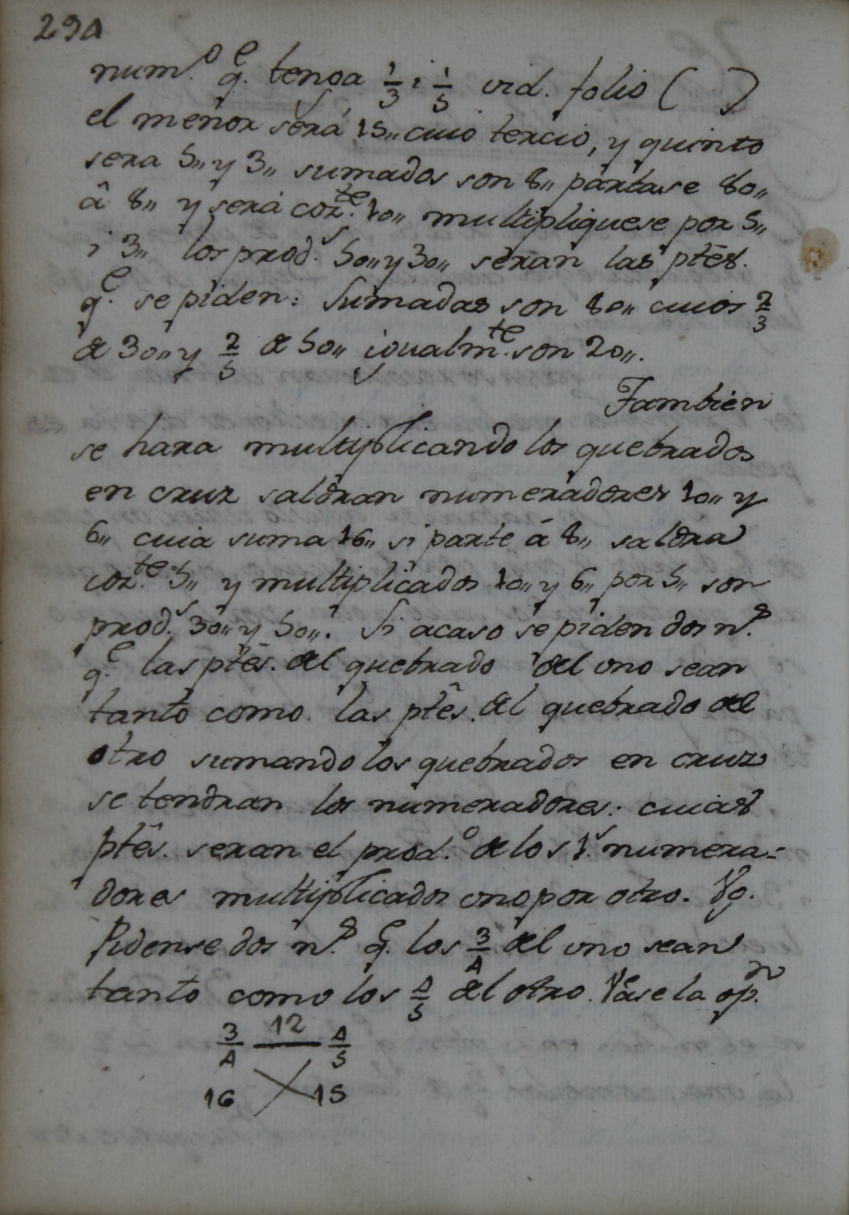 294
num.º q.e tenga 1/3 i 1/5 vid. folio ( )
el menor será, 15,, cuio tercio, y quinto
sera 5,, y 3,, sumados son 8,, partase 80,,
â 8,, y será coz.te 10,, multipliquese por 5,,
i 3,, los prod.s 50,, y 30,, seran las ptēs.
q.e se piden: Sumadas son 80,, cuios 2/3
de 30,, y 2/5 de 50,, igualm.te son 20,,.
Tambien
se hara multiplicando los quebrados
en cruz saldran numeradores 10,, y
6,, cuia suma 16,, si parte á 8,, saldra
coz.te 5,, y multiplicados 10,, y 6,, por 5,, son
prod.s 30,, y 50,,. Si acaso se piden dos n.s
q.e las ptēs. del quebrado del uno sean
tanto como las ptēs. del quebrado del
otro sumando los quebrados en cruz
se tendran los numeradores: cuias
ptēs. seran el prod.o de los 1.s numera=
dores multiplicados uno por otro. Vg.
Pidense dos n.s q.e los 3/4 del uno sean
tanto como los 4/5 del otro. Vease la op.n
3/4 12 4/5
16 15